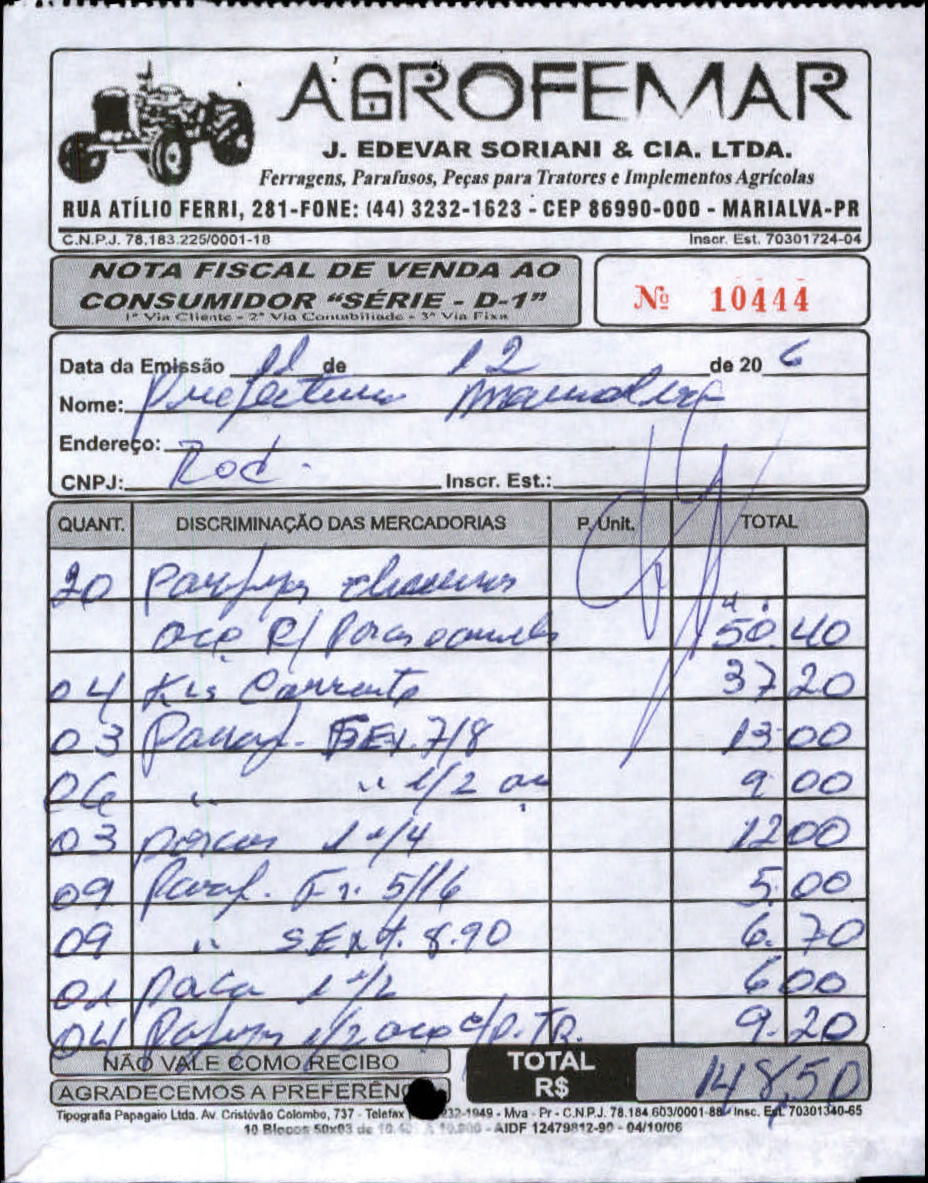 AGROFEMAR
J. EDEVAR SORIANI & CIA. LTDA.
Ferragens, Parafusos, Peças para Tratores e Implementos Agrícolas
RUA ATÍLIO FERRI, 281-FONE: (44) 3232-1623 - CEP 86990-000 - MARIALVA-PR
C.N.P.J. 78.183.225/0001-18 Inscr. Est. 70301724-04
NOTA FISCAL DE VENDA AO
CONSUMIDOR "SÉRIE - D-1"
1ª Via Cliente - 2ª Via Contabiliade - 3ª Via Fixa
Nº 10444
Data da Emissão 11 de 12 de 20 6
Nome: Prefeitura
Endereço:
CNPJ: Rod. Inscr. Est.:
QUANT. DISCRIMINAÇÃO DAS MERCADORIAS P. Unit. TOTAL
20
50.40
04 37 20
03 Paraf. SEX. 7/8 13 00
06 " " 1/2 9 00
03 porcas 1"/4 12 00
09 Paraf. Fr. 5/16 5.00
09 " SEXT. 8.90 6.70
01 1"/2 6 00
04 1/2 aço 9.20
NÃO VALE COMO RECIBO
AGRADECEMOS A PREFERÊNC
TOTAL
R$ 148,50
Tipografia Papagaio Ltda. Av. Cristóvão Colombo, 737 - Telefax 232-1949 - Mva - Pr - C.N.P.J. 78.184.603/0001-88 - Insc. Est. 70301340-65
10 Blocos 50x03 de - AIDF 12479812-90 - 04/10/06